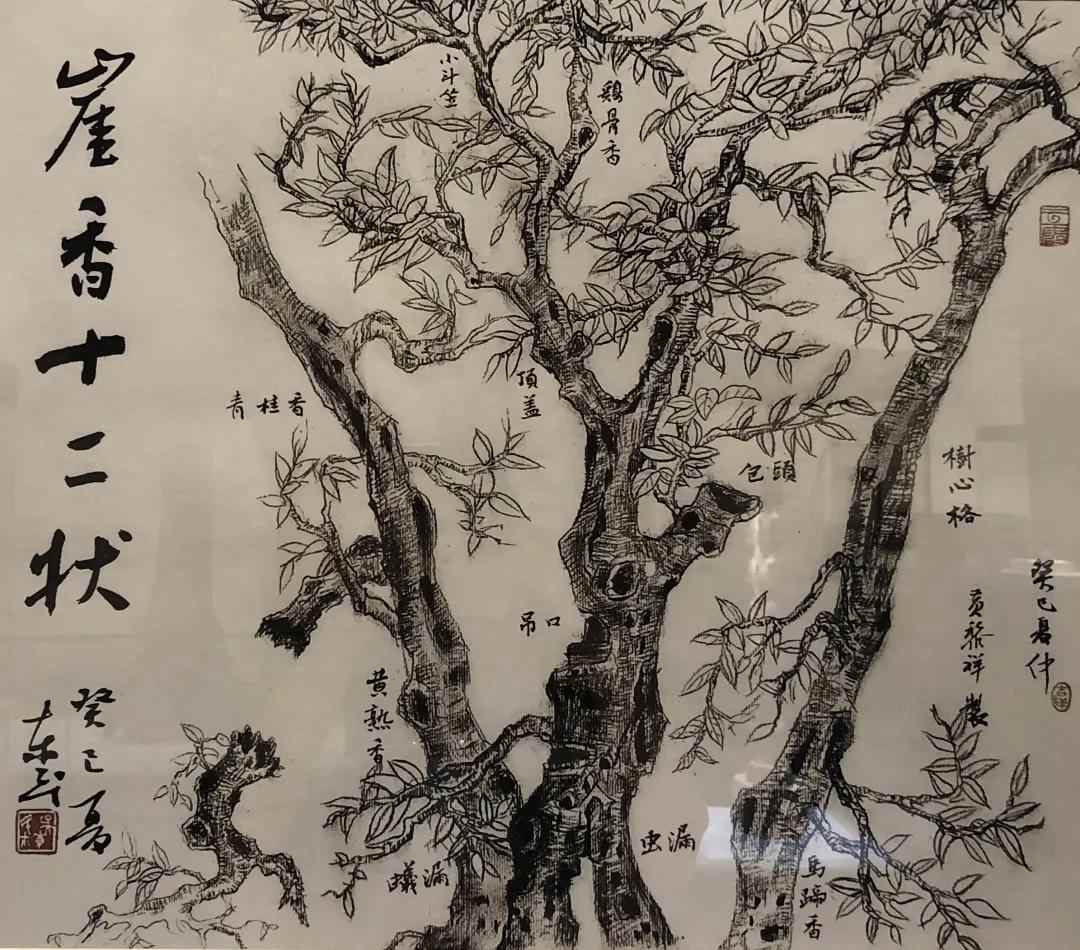 崖香十二状
癸巳夏
东武
小斗笠
鷄骨香
青桂香
頂盖
包頭
樹心格
吊口
黄熟香
蟻漏
虫漏
馬蹄香
癸巳暑仲
黄黎祥製